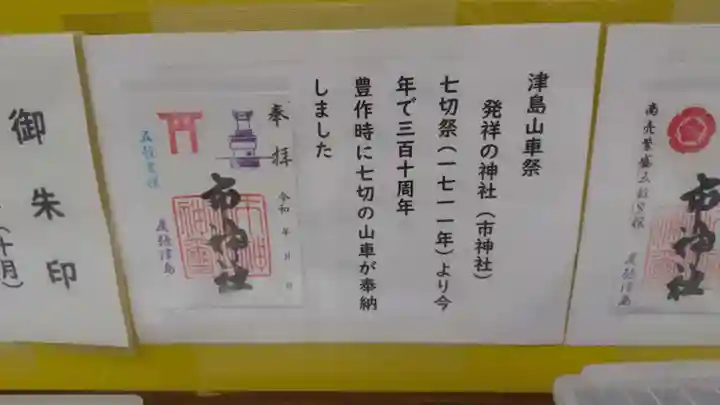 商売繁盛五穀豊穣
市神社
尾張津島
津島山車祭
発祥の神社（市神社）
七切祭（一七一一年）より今
年で三百十周年
豊作時に七切の山車が奉納
しました
奉拝
令和 年 月 日
市神社
五穀豊穣
尾張津島
御朱印
（十月）